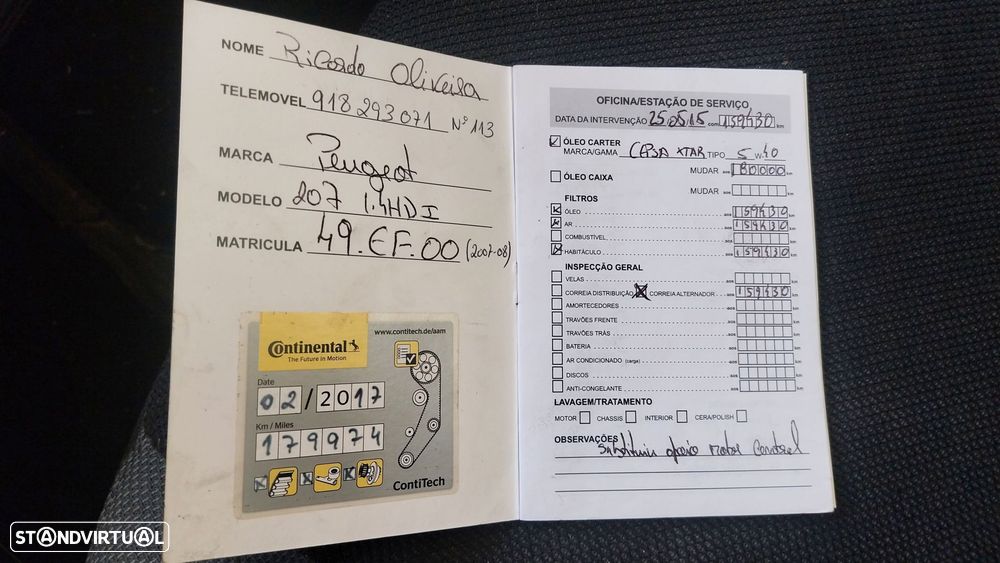 NOME Ricardo Oliveira
TELEMOVEL 918 293 071 Nº 113
MARCA Peugeot
MODELO 207 1.4HDI
MATRICULA 49.EF.00 (2007-08)
Continental
The Future in Motion
www.contitech.de/aam
Date
02/2017
Km / Miles
179974
ContiTech
OFICINA/ESTAÇÃO DE SERVIÇO
DATA DA INTERVENÇÃO 25/05/15 com 159430 km
ÓLEO CARTER
MARCA/GAMA CEPSA XTAR TIPO 5 W 40
MUDAR aos 180000 km
ÓLEO CAIXA
MUDAR aos km
FILTROS
ÓLEO aos 159430 km
AR aos 159430 km
COMBUSTÍVEL aos km
HABITÁCULO aos 159430 km
INSPECÇÃO GERAL
VELAS aos km
CORREIA DISTRIBUIÇÃO CORREIA ALTERNADOR aos 159430 km
AMORTECEDORES aos km
TRAVÕES FRENTE aos km
TRAVÕES TRÁS aos km
BATERIA aos km
AR CONDICIONADO (carga) aos km
DISCOS aos km
ANTI-CONGELANTE aos km
LAVAGEM/TRATAMENTO
MOTOR CHASSIS INTERIOR CERA/POLISH
OBSERVAÇÕES motor
STANDVIRTUAL